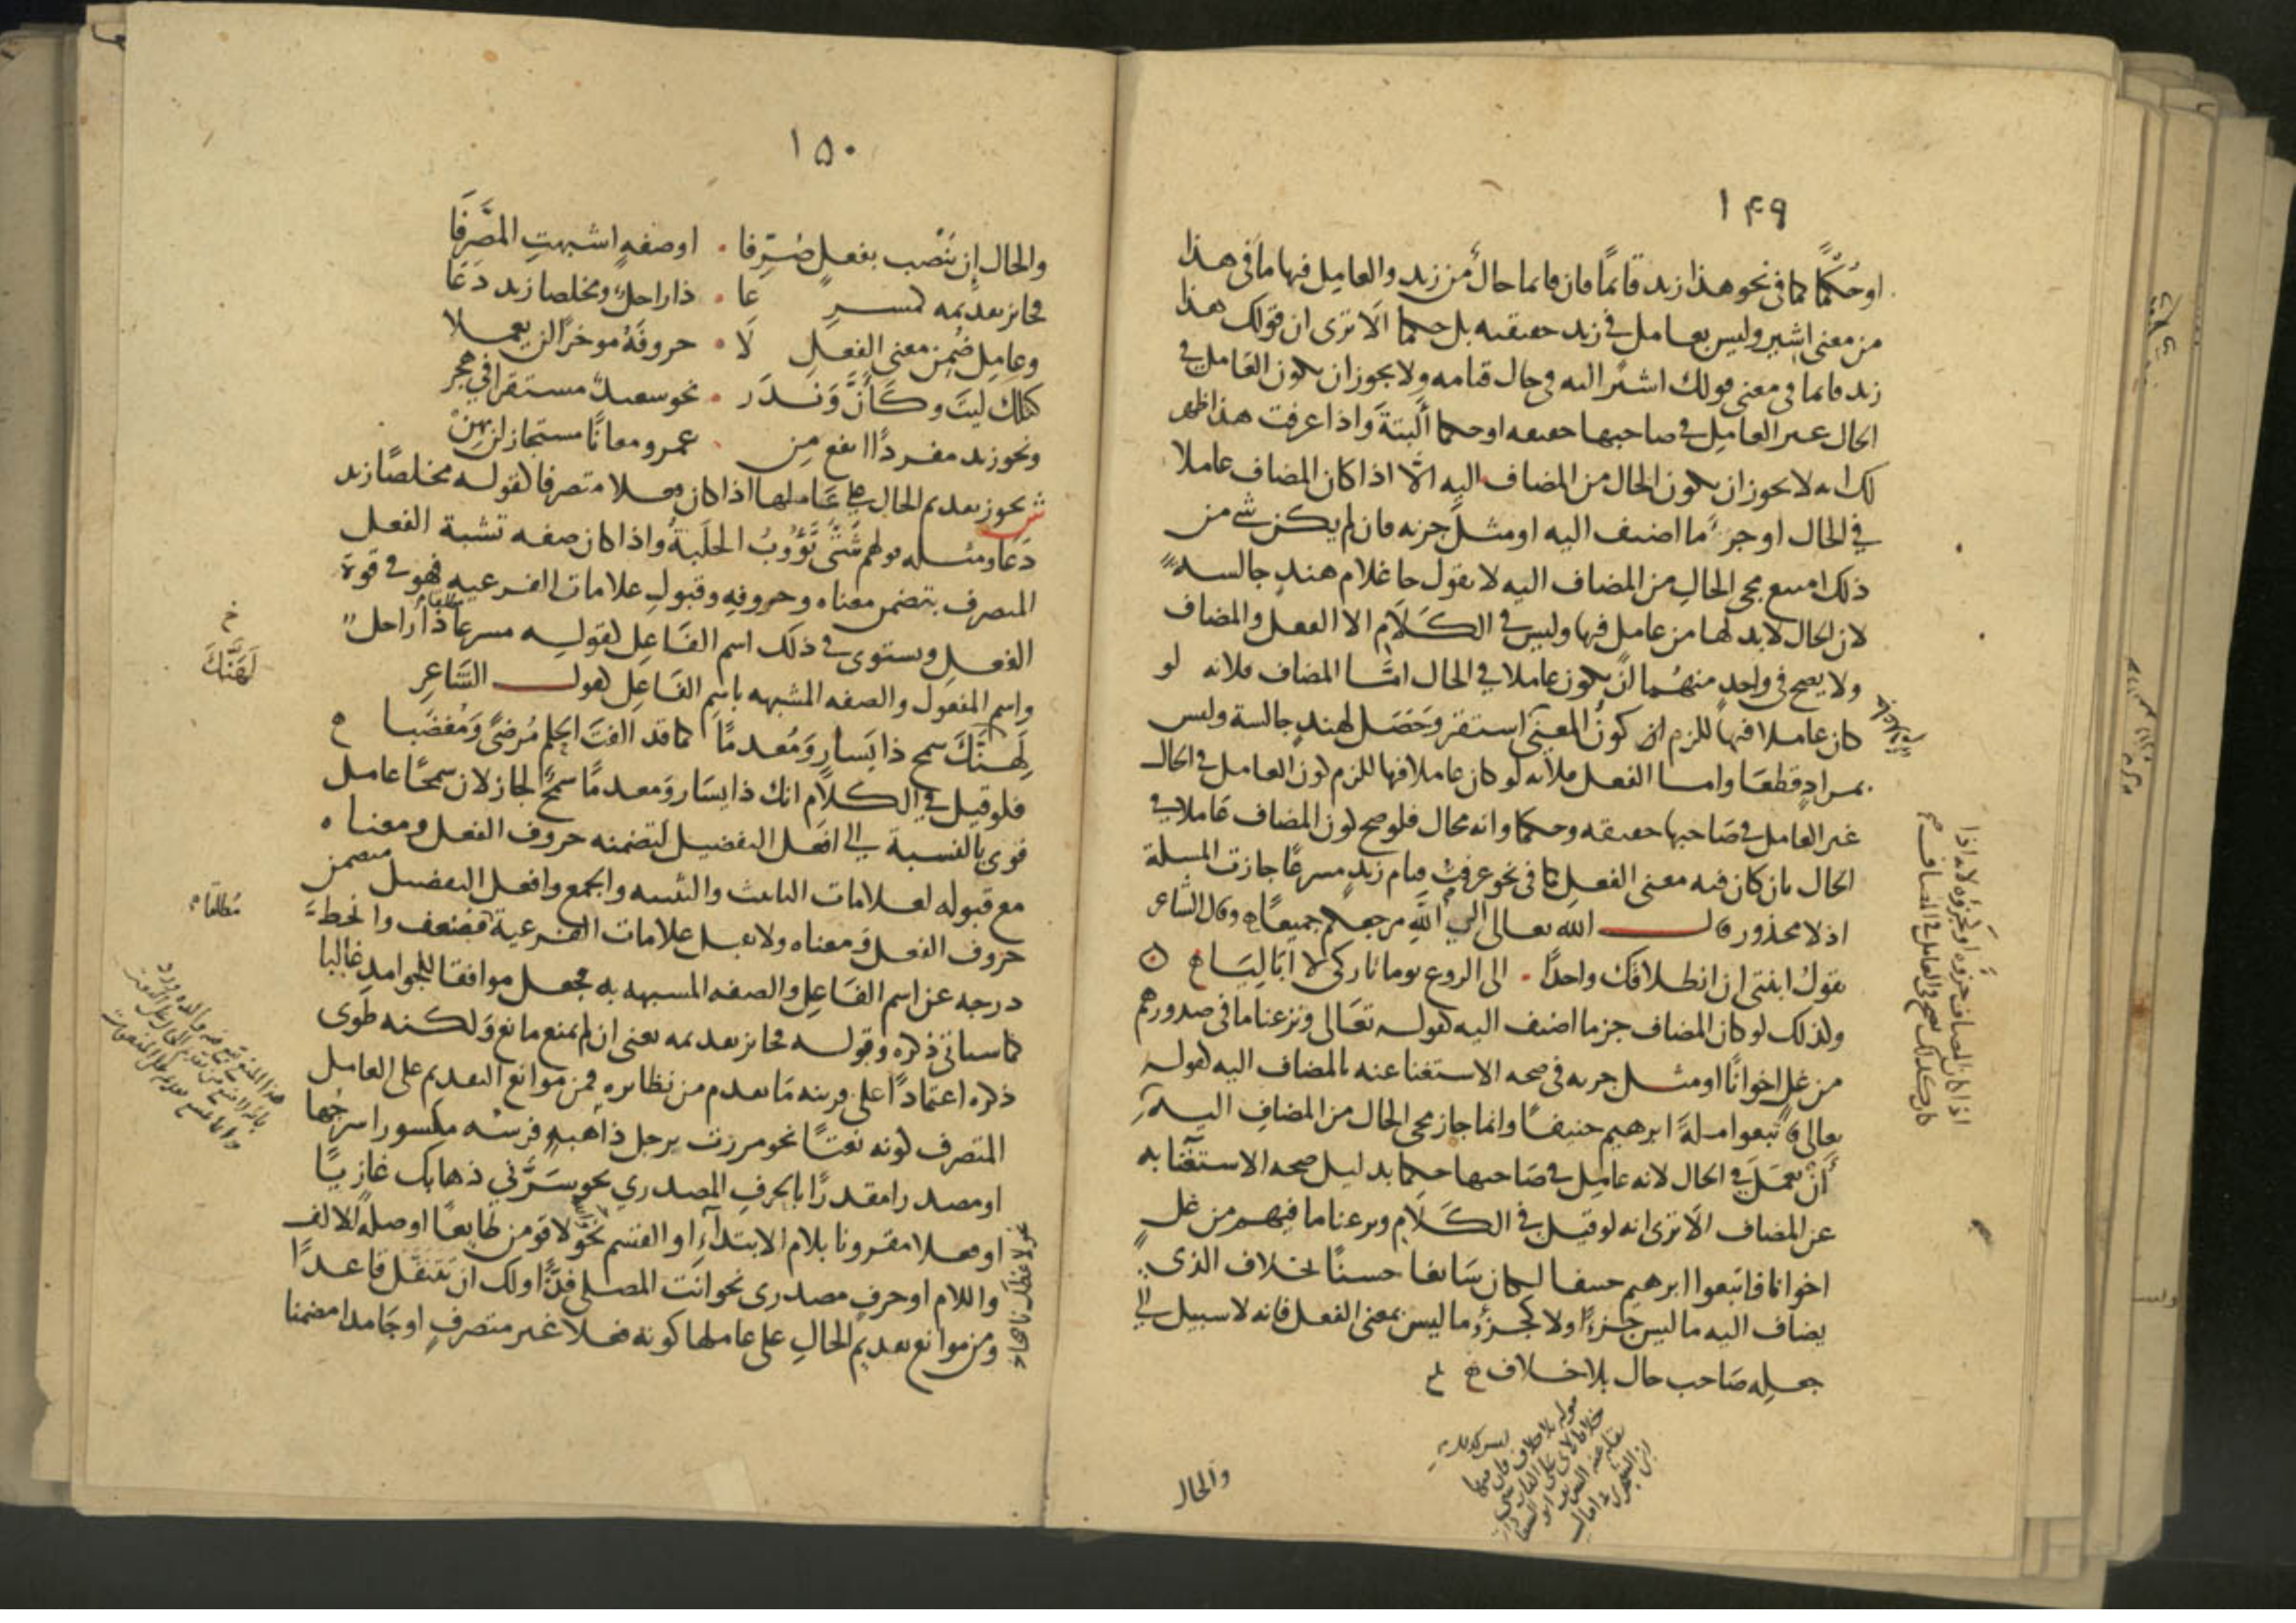 ١٤٩
او حكما كما فى نحو هذا زيد قائما فان قائما حال من زيد والعامل فيها ما فى هذا
من معنى اشير وليس بعامل فى زيد حقيقه بل حكما الا ترى ان قولك هذا
زيد قائما فى معنى قولك اشير اليه فى حال قيامه ولا يجوز ان يكون العامل فى
الحال غير العامل فى صاحبها حقيقه او حكما البتة واذا عرفت هذا ظهر
لك انه لا يجوز ان يكون الحال من المضاف اليه الا اذا كان المضاف عاملا
فى الحال او جزء ما اضيف اليه او مثل جزئه فان لم يكن شى من
ذلك امتنع مجى الحال من المضاف اليه لا تقول جا غلام هند جالسه
لان الحال لا بد لها من عامل فيها وليس فى الكلام الا الفعل والمضاف
ولا يصح فى واحد منهما ان يكون عاملا فى الحال امّا المضاف فلانه لو
كان عاملا فيها للزم كون المعنى استقر وحصل لهند جالسة وليس
بمراد قطعا واما الفعل فلانه لو كان عاملا فيها للزم كون العامل فى الحال
غير العامل فى صاحبها حقيقه وحكما وانه محال فلو صح كون المضاف عاملا فى
الحال بان كان فيه معنى الفعل كما فى نحو عرفت قيام زيد مسرعا جازت المسلة
اذ لا محذور قال الله تعالى الى الله مرجعكم جميعا وقال الشاعر
تقول ابنتى ان انطلاقك واحدا • الى الروع يوما تاركى لا اباليا
ولذلك لو كان المضاف جزء ما اضيف اليه كقوله تعالى ونزعنا ما فى صدورهم
من غل اخوانا او مثل جزئه فى صحه الاستغنا عنه بالمضاف اليه كقوله
تعالى فاتبعوا ملة ابرهيم حنيفا وانما جاز مجى الحال من المضاف اليه
أن يعمل فى الحال لانه عامل فى صاحبها حكما بدليل صحه الاستغنا به
عن المضاف الا ترى انه لو قيل فى الكلام ونزعنا ما فيهم من غل
اخوانا فاتبعوا ابرهيم حنيفا لكان سائغا حسنا بخلاف الذى
يضاف اليه ما ليس جزءا ولا كجزء ما ليس بمعنى الفعل فانه لا سبيل الى
جعله صاحب حال بلا خلاف
والحال
١٥٠
والحال ان ينصب بفعل صرفا • او صفه اشبهت المصرفا
فجائز تقديمه كمسرعا • ذا راحل ومخلصا زيد دعا
وعامل ضمن معنى الفعل لا • حروفه موخرا لن يعملا
كتلك ليت وكأن وندر • نحو سعيد مستقرا فى هجر
ونحو زيد مفردا انفع من • عمرو معانا مستجاز لن يهن
ش يجوز تقديم الحال على عاملها اذا كان فعلا متصرفا كقوله مخلصا زيد
دعا ومثله قولهم شتى تؤوب الحلبة واذا كان صفه تشبه الفعل
المتصرف بتضمن معناه وحروفه وقبول علامات الفرعيه فهو فى قوة
الفعل ويستوى فى ذلك اسم الفاعل كقوله مسرعا ذا راحل
واسم المفعول والصفه المشبهه باسم الفاعل كقول الشاعر
لهنك سمح ذا يسار ومعدما كما قد الفت الحلم مرضى ومغضبا
فلو قيل فى الكلام انك ذا يسار ومعدما سمح لجاز لان سمحا عامل
قوى بالنسبة الى افعل التفضيل لتضمنه حروف الفعل ومعناه
مع قبوله لعلامات التانيث والتثنيه والجمع وافعل التفضيل متضمن
حروف الفعل ومعناه ولا يقبل علامات الفرعية فضعف وانحط
درجه عن اسم الفاعل والصفه المشبهه به فجعل موافقا للجوامد غالبا
كما سياتى ذكره وقوله فجائز تقديمه يعنى ان لم يمنع مانع ولكنه طوى
ذكره اعتمادا على قرينه ما تقدم من نظائره فمن موانع التقديم على العامل
المتصرف كونه نعتا نحو مررت برجل ذاهبه فرسه مكسورا سرجها
او مصدرا مقدرا بالحرف المصدري نحو سرني ذهابك غازيا
او فعلا مقرونا بلام الابتداء او القسم نحو لاقومن طايعا او صلة للالف
واللام او حرف مصدرى نحو انت المصلى فذا ولك ان تتنقل قاعدا
ومن موانع تقديم الحال على عاملها كونه فعلا غير متصرف او جامدا مضمنا
خ
لهنك
مطلقا